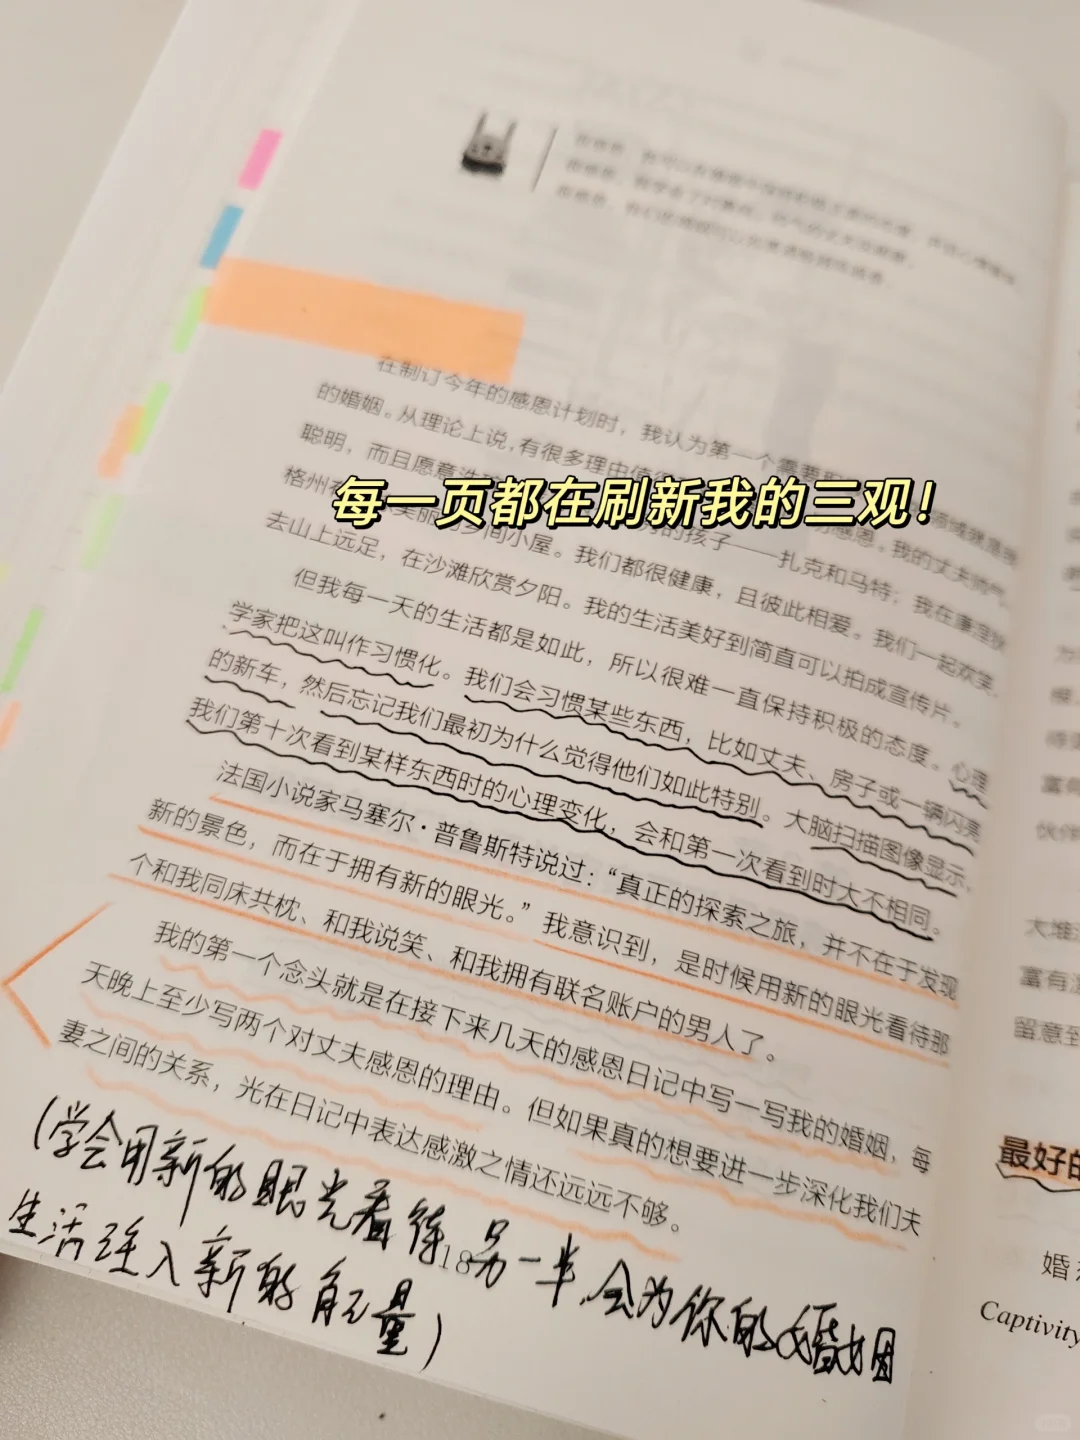 在制订今年的感恩计划时，我认为第一个需要
的婚姻。从理论上说，有很多理由值得 感恩。我的丈夫帅气、
聪明，而且愿意 的孩子——扎克和马特；我在康涅狄
格州有 美丽的乡间小屋。我们都很健康，且彼此相爱。我们一起欢笑，
去山上远足，在沙滩欣赏夕阳。我的生活美好到简直可以拍成宣传片。
但我每一天的生活都是如此，所以很难一直保持积极的态度。心理
学家把这叫作习惯化。我们会习惯某些东西，比如丈夫、房子或一辆闪亮
的新车，然后忘记我们最初为什么觉得他们如此特别。大脑扫描图像显示，
我们第十次看到某样东西时的心理变化，会和第一次看到时大不相同。
法国小说家马塞尔·普鲁斯特说过：“真正的探索之旅，并不在于发现
新的景色，而在于拥有新的眼光。”我意识到，是时候用新的眼光看待那
个和我同床共枕、和我说笑、和我拥有联名账户的男人了。
我的第一个念头就是在接下来几天的感恩日记中写一写我的婚姻，每
天晚上至少写两个对丈夫感恩的理由。但如果真的想要进一步深化我们夫
妻之间的关系，光在日记中表达感激之情还远远不够。
每一页都在刷新我的三观！
(学会用新的眼光看待另一半，会为你的婚姻
生活注入新的能量)
18
大堆
富有
留意到
最好的
婚
Captivity